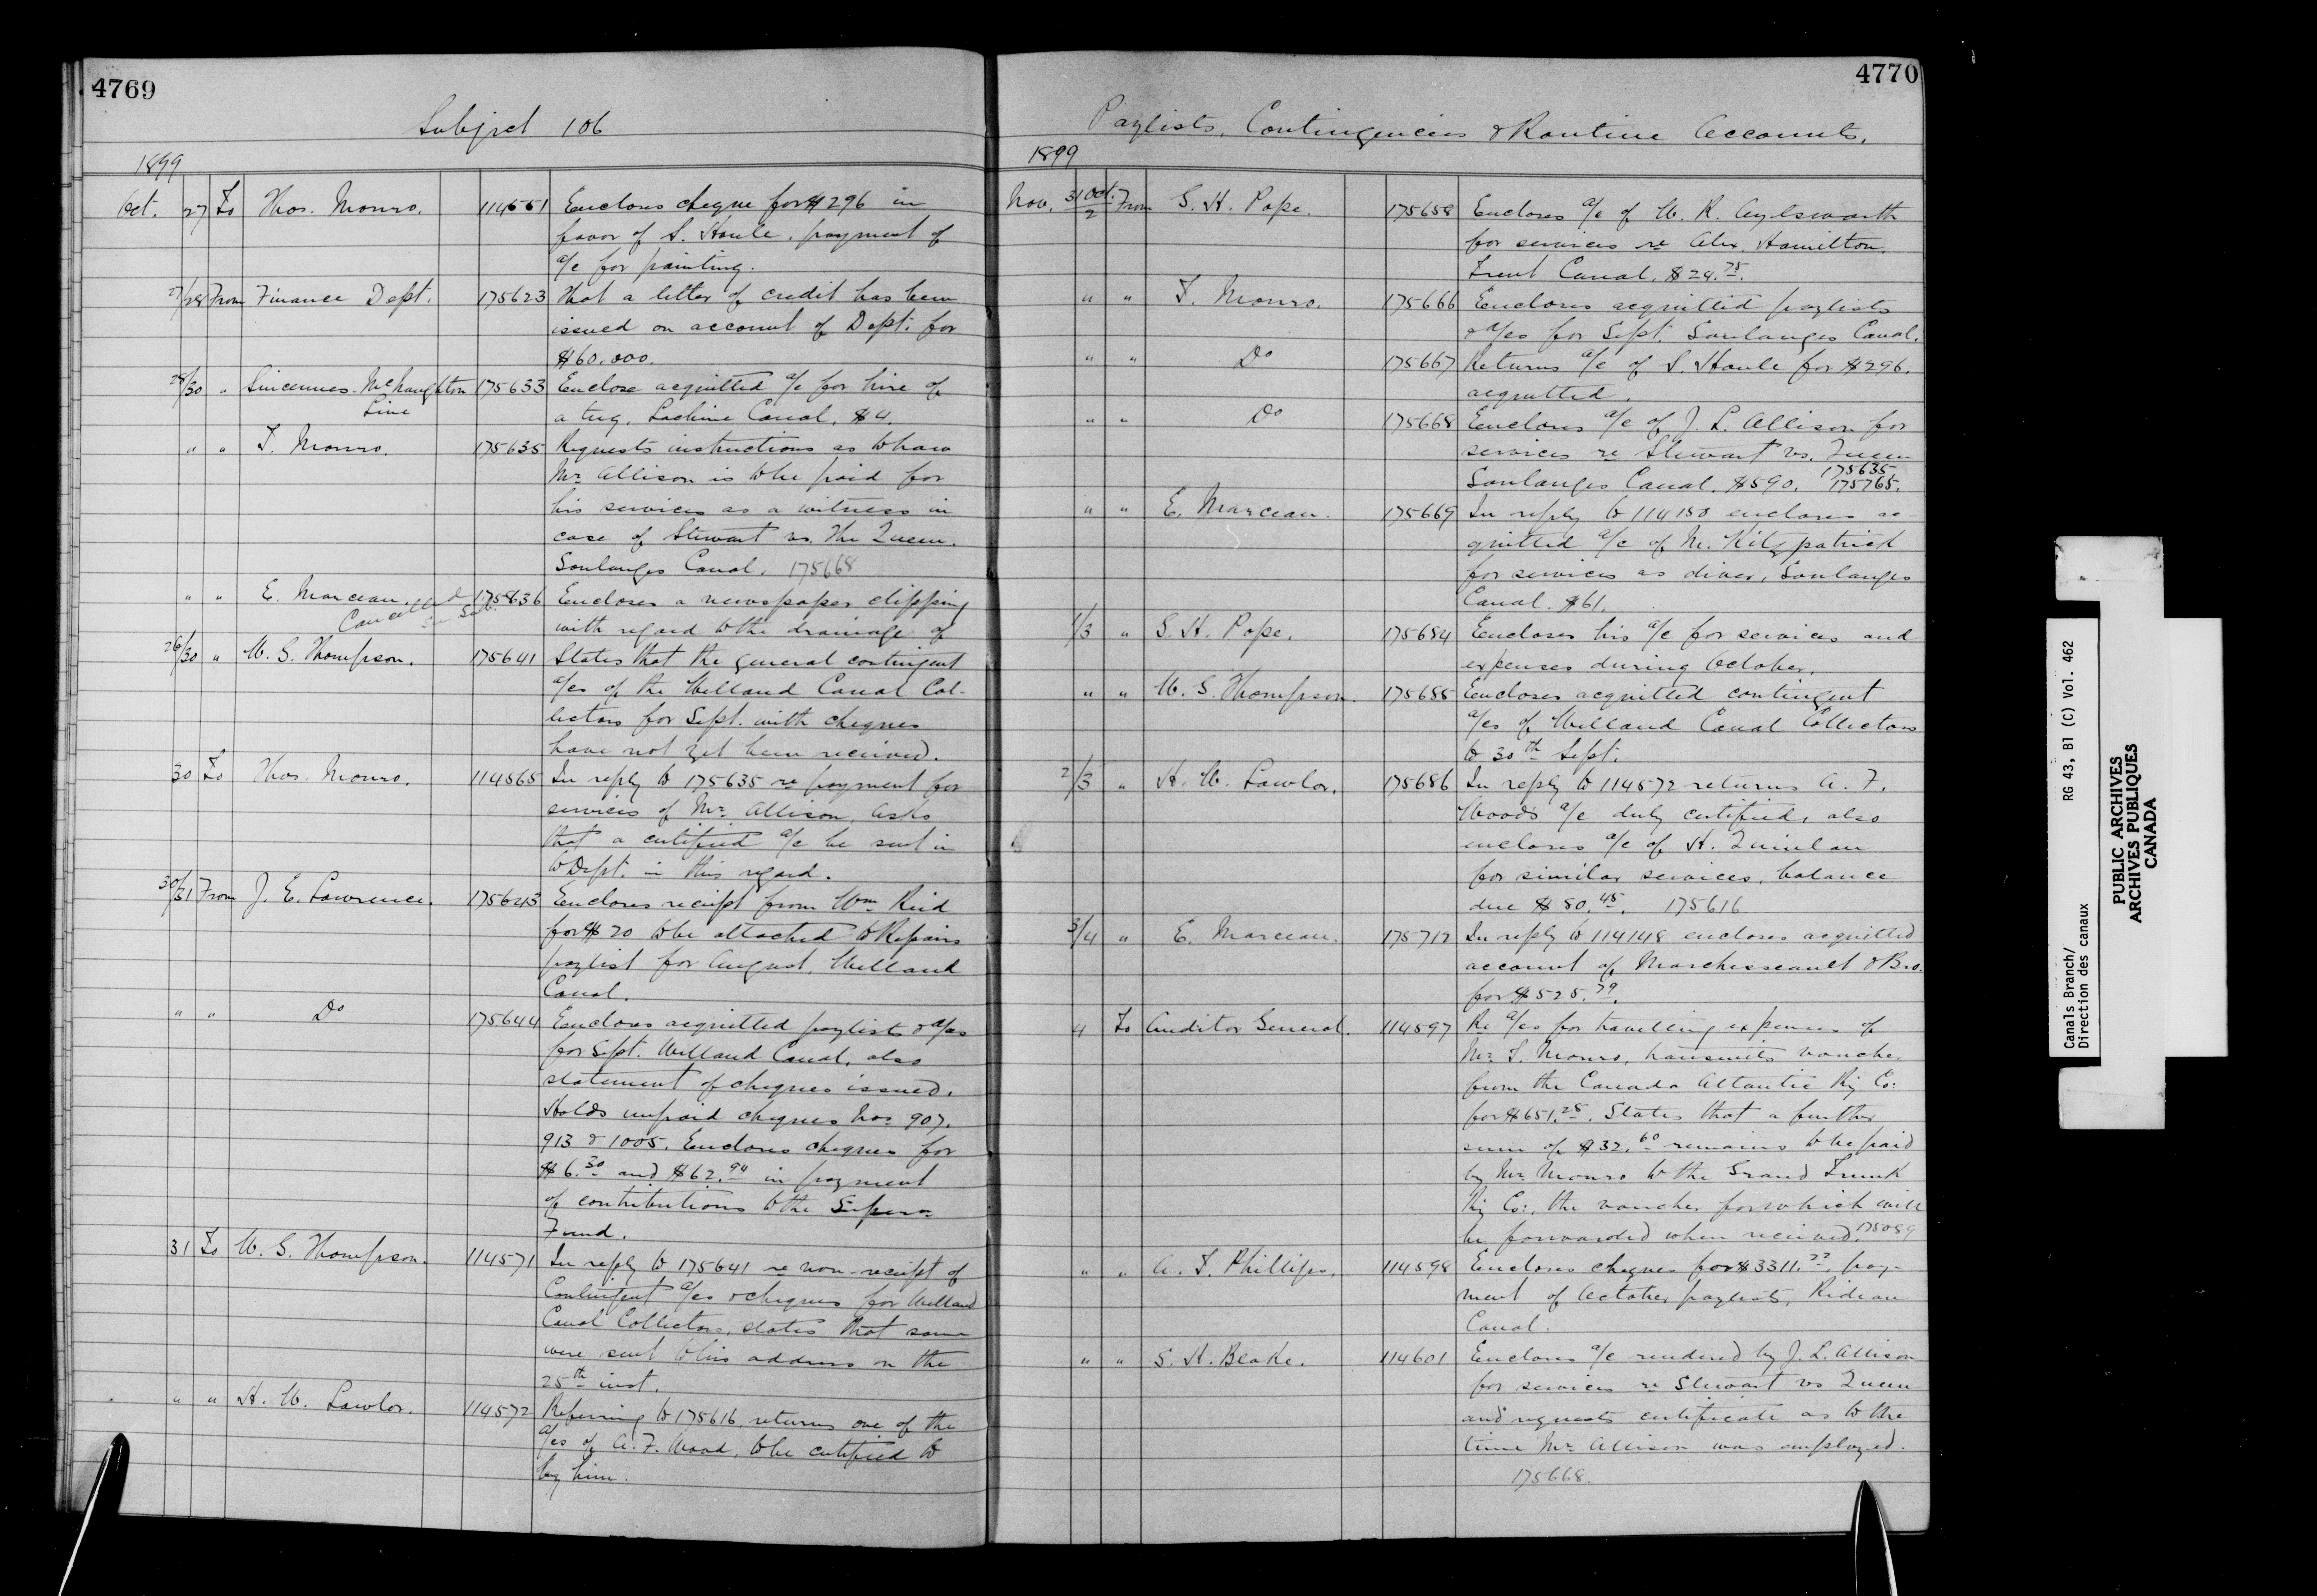 4769
Subject 106
1899
Oct. 27 To Thos. Monro. 114551 Encloses cheque for $296 in
favor of S. Houle, payment of
a/c for painting.
27/28 From Finance Dept. 175623 That a letter of credit has been
issued on account of Dept. for
$60.000.
28/30 " Sincennes-McNaughton 175633 Enclose acquitted a/c for hire of
Line a tug, Lachine Canal, $4.
" " T. Monro. 175635 Requests instructions as to how
Mr. Allison is to be paid for
his services as a witness in
case of Stewart vs. The Queen.
Soulanges Canal. 175668
" " E. Marceau. 175636 Encloses a newspaper clipping
Cancelled
with regard to the drainage of
26/30 " W. G. Thompson. 175641 States that the general contingent
a/cs of the Welland Canal Col-
lectors for Sept. with cheques
have not yet been received.
30 To Thos. Monro. 114565 In reply to 175635 re payment for
services of Mr. Allison, asks
that a certified a/c be sent in
to Dept. in this regard.
30/31 From J. E. Lawrence. 175643 Encloses receipt from Wm Reid
for $20 to be attached to Repairs
paylist for August, Welland
Canal.
" " Do 175644 Encloses acquitted paylists & a/cs
for Sept. Welland Canal, also
statement of cheques issued.
Holds unpaid cheques Nos. 907.
913 & 1005. Encloses cheques for
$6.30 and $62.94 in payment
of contributions to the Supern
Fund.
31 To W. G. Thompson. 114571 In reply to 175641 re non-receipt of
Contingent a/cs & cheques for Welland
Canal Collectors, states that same
were sent to his address on the
25th inst.
" " H. W. Lawlor. 114572 Referring to 175616, returns one of the
a/cs of A. F. Wood, to be certified to
by him.
4770
Paylists, Contingencies & Routine Accounts.
1899
Nov. 31 Oct./2 From S. H. Pope. 175658 Encloses a/c of W. R. Aylsworth
for services re Alex. Hamilton,
Trent Canal. $24.75.
" " T. Monro. 175666 Encloses acquitted paylists
& a/cs for Sept. Soulanges Canal.
" " Do 175667 Returns a/c of S. Houle for $296.
acquitted.
" " Do 175668 Encloses a/c of J. L. Allison for
services re Stewart vs. Queen
175635.
Soulanges Canal. $590. 175765.
" " E. Marceau. 175669 In reply to 114150 encloses ac-
quitted a/c of M. Kilzpatrick
for services as diver, Soulanges
Canal. $61.
1/3 " S. H. Pope. 175684 Encloses his a/c for services and
expenses during October.
" " W. G. Thompson. 175685 Encloses acquitted contingent
a/cs of Welland Canal Collectors
to 30th Sept.
2/3 " H. W. Lawlor. 175686 In reply to 114572 returns A. F.
Wood's a/c duly certified, also
encloses a/c of H. Quinlan
for similar services, balance
due $50.45. 175616
3/4 " E. Marceau. 175712 In reply to 114148 encloses acquitted
account of Marchesseault & Bro.
for $525.79.
4 To Auditor General. 114597 Re a/cs for travelling expenses of
Mr. T. Monro, transmits voucher
from the Canada Atlantic Ry Co:
for $651.25. States that a further
sum of $32.60 remains to be paid
by Mr. Monro to the Grand Trunk
Ry Co:, the voucher for which will
be forwarded when received. 175089
" " A. T. Phillips. 114598 Encloses cheques for $3311.22, pay-
ment of October paylists, Rideau
Canal.
" " S. H. Blake. 114601 Encloses a/c rendered by J. L. Allison
for services re Stewart vs Queen
and requests certificate as to the
time Mr. Allison was employed.
175668.
Canals Branch/ RG 43, B1 (C) Vol. 462
Direction des canaux
PUBLIC ARCHIVES
ARCHIVES PUBLIQUES
CANADA